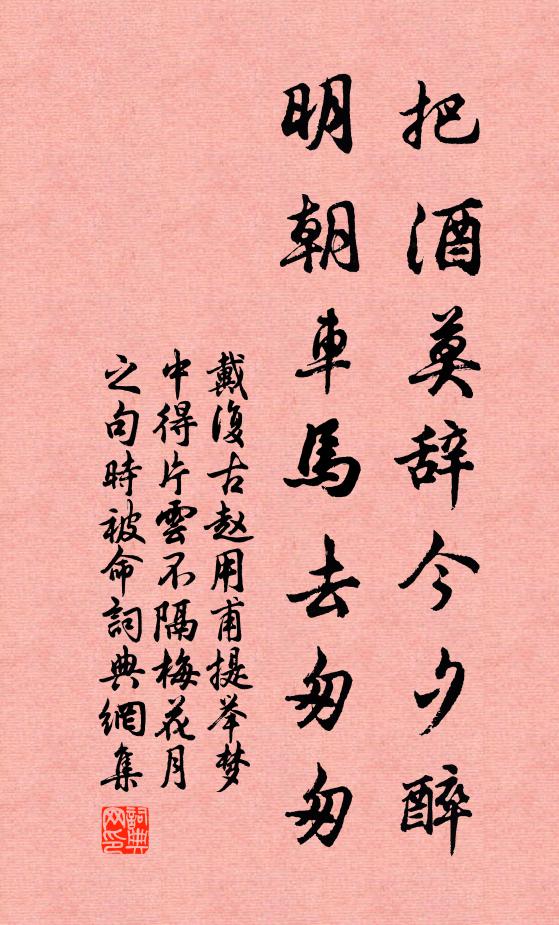 把酒莫辞今夕醉
明朝車馬去匆匆
戴復古赵用甫提举梦
中得片雲不隔梅花月
之句時被命詞典網集
詞典
网印